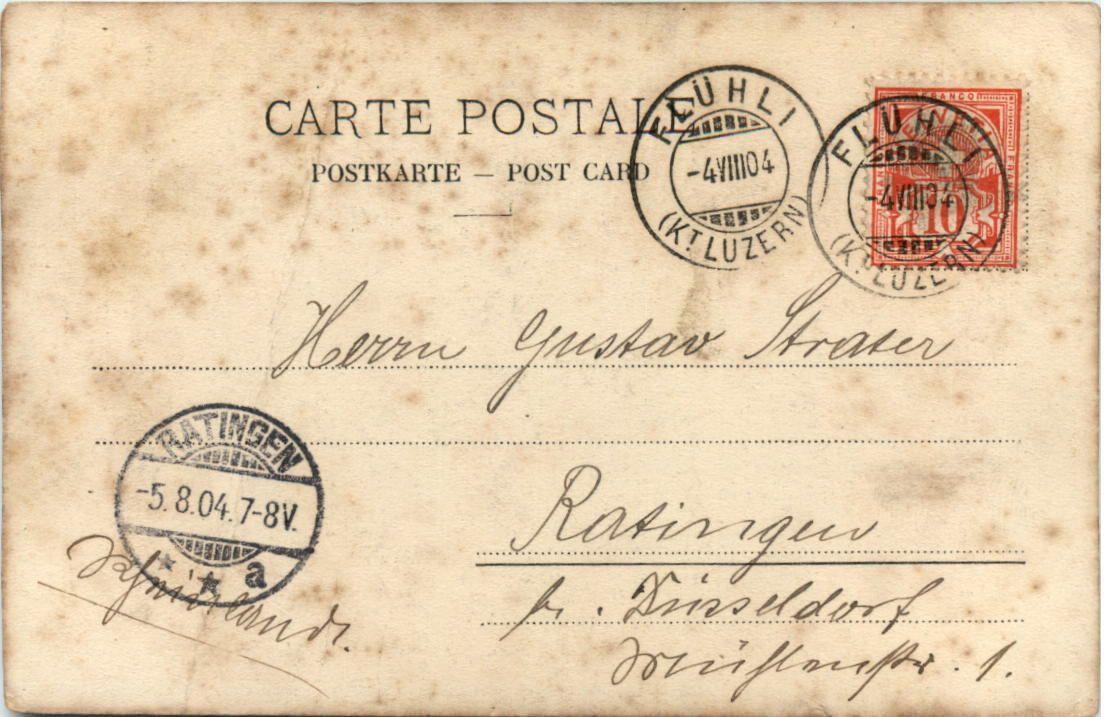 CARTE POSTALE
POSTKARTE — POST CARD
FLÜHLI
-4VIII04
(KT. LUZERN)
FRANCO
FLÜHLI
-4VIII04
(KT. LUZERN)
10
Herrn Gustav Strater
RATINGEN
-5.8.04.7-8V.
* * a
Ratingen
br. Düsseldorf
Mühlenstr. 1.
Rheinland.